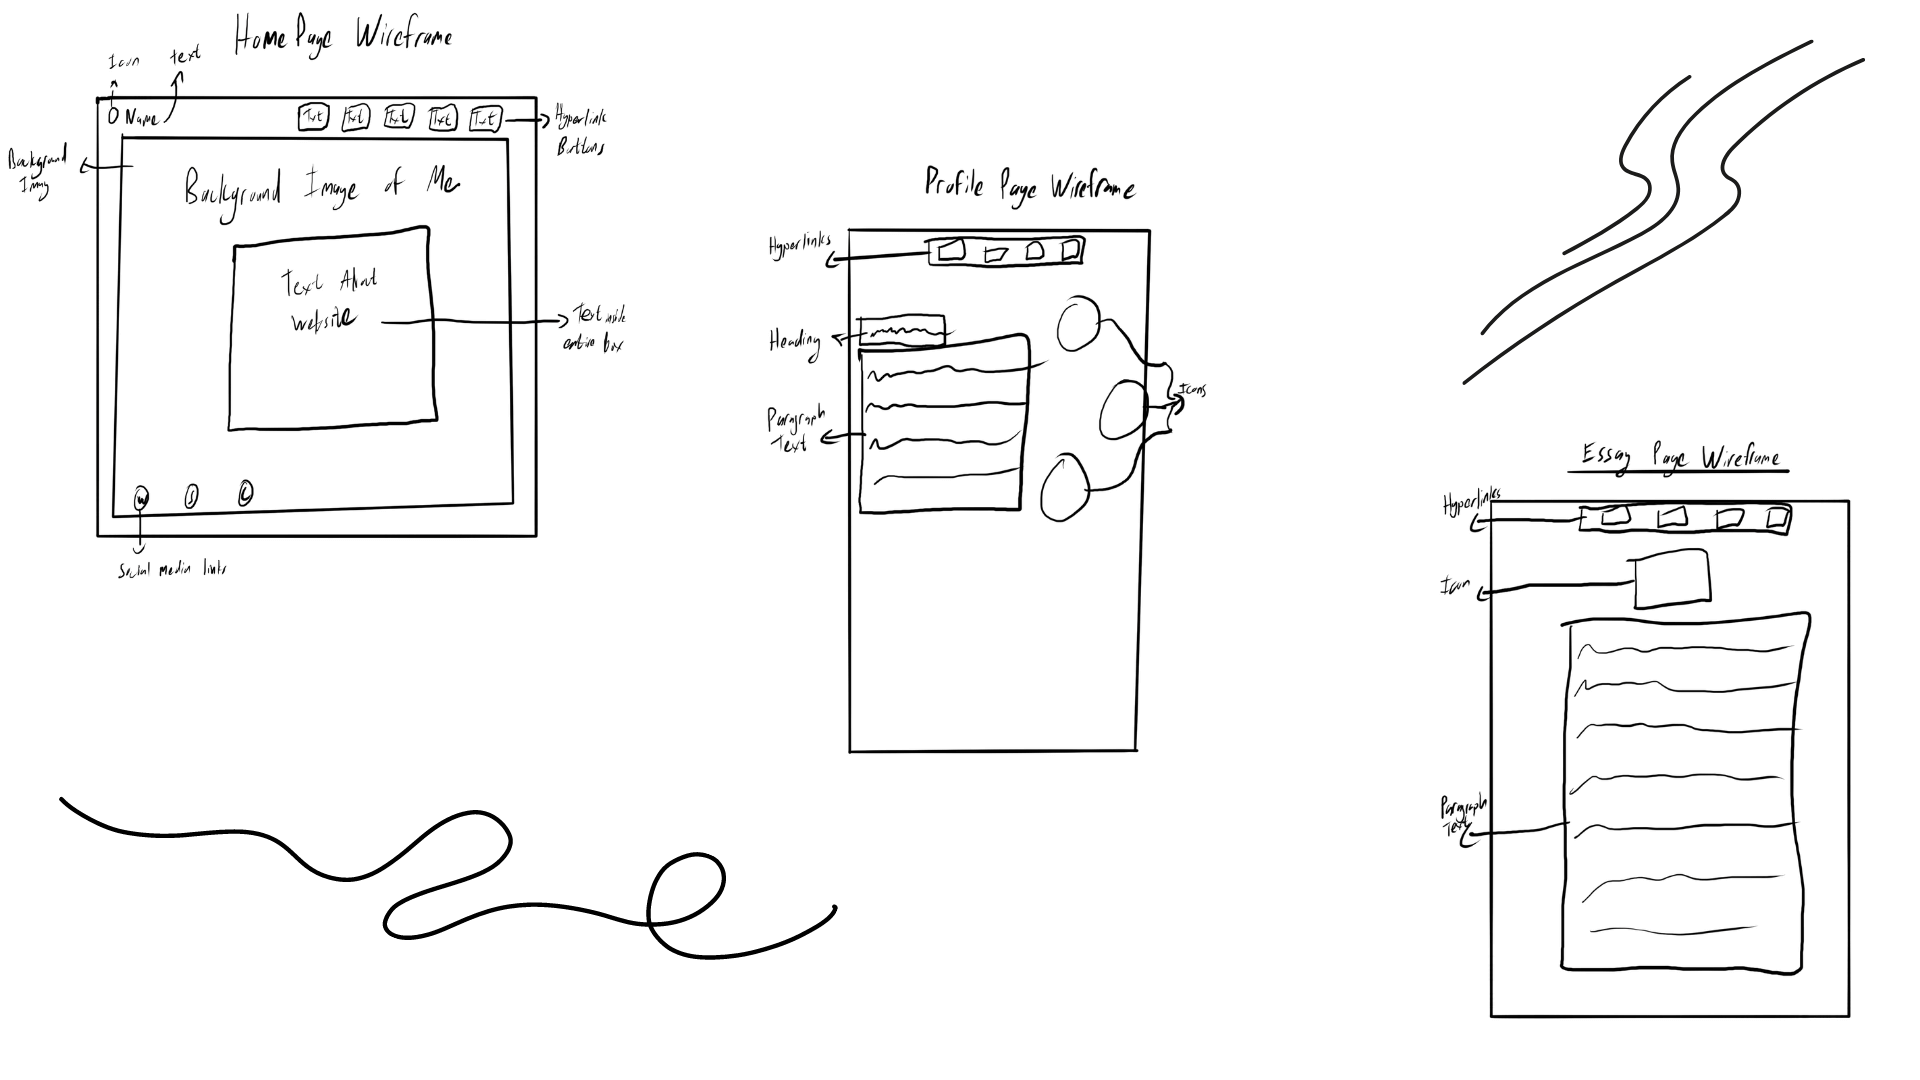 HomePage Wireframe
Icon
text
Name
Txt Txt Txt Txt Txt
Hyperlink
Buttons
Background
Imag
Background Image of Me
Text About
website
Text inside
entire box
W S C
Social media links
Profile Page Wireframe
Hyperlinks
Heading
Paragraph
Text
Icons
Essay Page Wireframe
Hyperlinks
Icon
Paragraph
Text